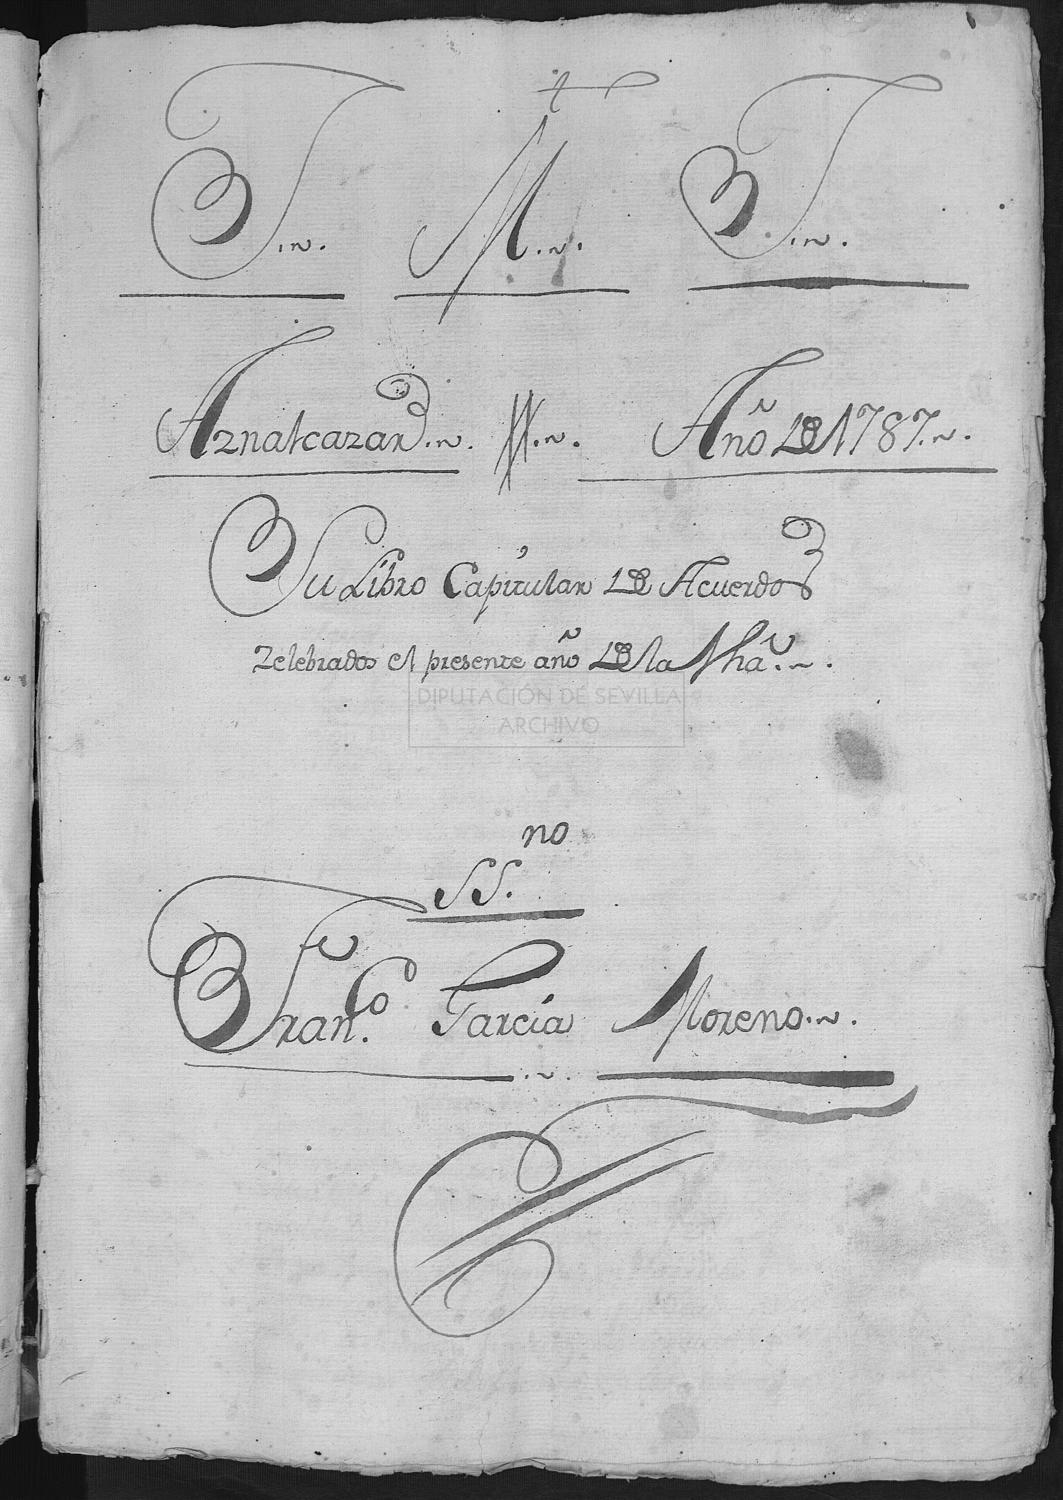 J. M. J.
Aznalcazar. Año de 1787.
Su Libro Capitular de Acuerdos
Zelebrados el presente año de la fha.
DIPUTACIÓN DE SEVILLA
ARCHIVO
no
SS.
Fran.co García Moreno.